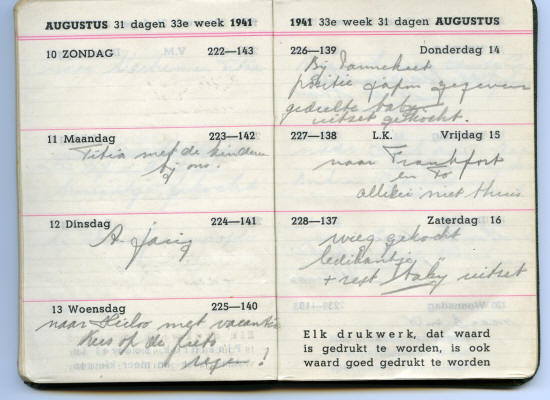 AUGUSTUS 31 dagen 33e week 1941
10 ZONDAG 222—143
11 Maandag 223—142
Titia met de kinderen
bij ons.
12 Dinsdag 224—141
A. jarig
13 Woensdag 225—140
naar Heiloo met vacantie
Kees op de fiets
regen!
1941 33e week 31 dagen AUGUSTUS
226—139 Donderdag 14
Bij
positie gegeven
gedeelte baby
uitset gekocht.
227—138 L.K. Vrijdag 15
naar Frankfort
en
allebei niet thuis
228—137 Zaterdag 16
wieg gekocht
ledikantje
+ rest baby uitset
Elk drukwerk, dat waard
is gedrukt te worden, is ook
waard goed gedrukt te worden